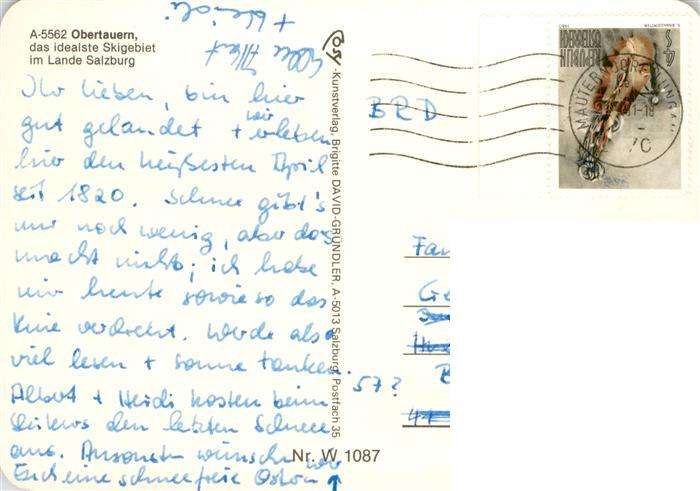 A-5562 Obertauern,
das idealste Skigebiet
im Lande Salzburg
Ihr Lieben, bin hier
gut gelandet + wir erleben
hier den heißesten April
seit 1820. Schnee gibt's
nur noch wenig, aber das
macht nichts; ich habe
mir heute sowieso das
Knie verdreht. Werde also
viel lesen + Sonne tanken.
Albert + Heidi kosten beim
Skikurs den letzten Schnee
aus. Ansonsten wünschen wir
Euch eine schneefreie Ostern
Albert
+ Heidi
-Kunstverlag, Brigitte DAVID-GRÜNDLER, A-5013 Salzburg, Postfach 35
Nr. W 1087
BRD
57?
REPUBLIK ÖSTERREICH
S 4